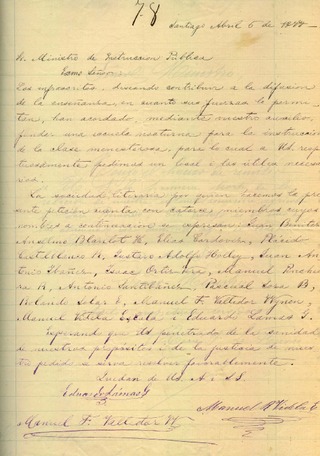 78
Santiago Abril 6 de 1888
Sr. Ministro de Instruccion Pública
Los infrascritos, deseando contribuir a la difusion
de la enseñanza, en cuanto sus fuerzas lo permi-
ten, han acordado, mediante vuestro auxilio,
fundar una escuela nocturna para la instruccion
de la clase menesterosa, para lo cual a Ud. resp
tuosamente pedimos un local i los útiles necesa-
rios.
La sociedad literaria por quien hacemos la pre-
sente peticion cuenta con catorce miembros cuyos
nombres a continuacion se espresan: Juan Benitez
Anselmo Blanlot H, Elias Cordova, Plácido
Castellanos R, Gustavo Adolfo Holley, Juan An-
tonio Ibañez, Isaac Ortiz, Manuel Pinchei
ra R, Antonio Santibañez, Pascual Sosa B,
Rolando Solar E, Manuel F. Valledor
Manuel Videla E i Eduardo Lamas G.
Esperando que Ud penetrado de la sanidad
de nuestros propósitos i de la justicia de nues
tro pedido se sirva resolver favorablemente.
Quedan de Ud. A. i S.S.
Eduardo Lamas G
Manuel A Videla E
Manuel F. Valledor W